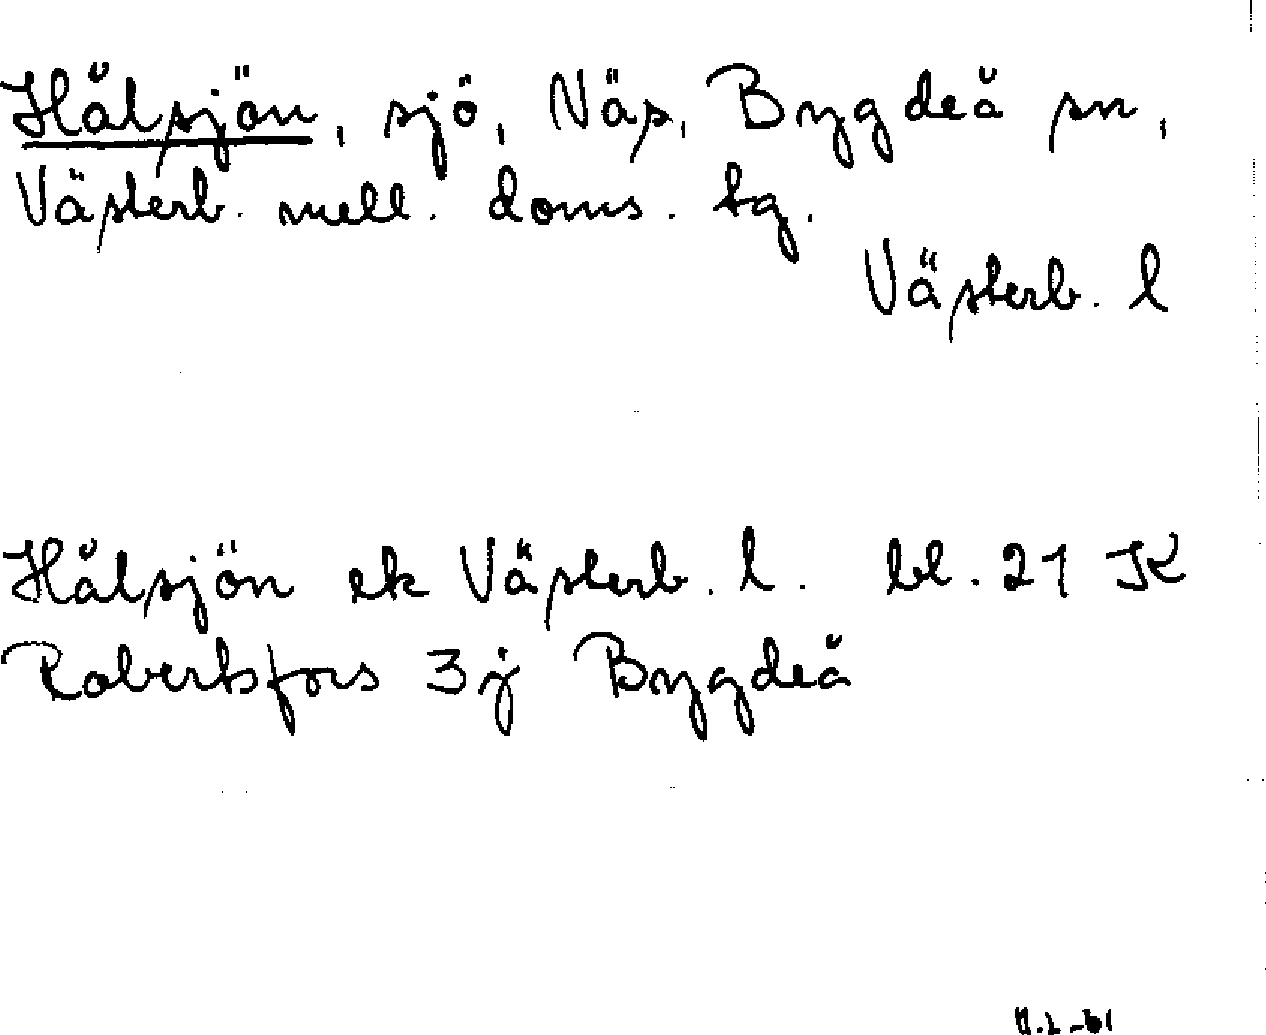 Hålsjön, sjö, Näs, Bygdeå sn,
Västerb. mell. doms. tg.
Västerb. l
Hålsjön ek Västerb. l. bl. 21 K
Robertsfors 3j Bygdeå